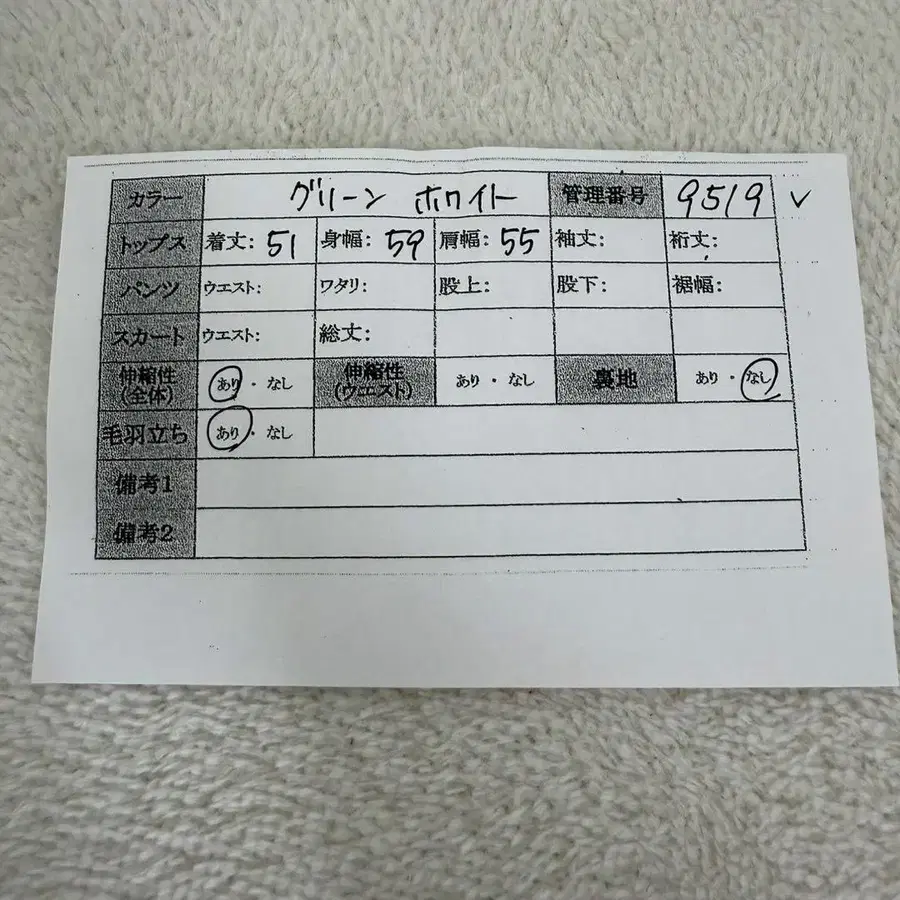 カラー グリーン ホワイト 管理番号 9519 ✓
トップス 着丈: 51 身幅: 59 肩幅: 55 袖丈: 裄丈:
パンツ ウエスト: ワタリ: 股上: 股下: 裾幅:
スカート ウエスト: 総丈:
伸縮性 (全体) あり・なし 伸縮性 (ウエスト) あり・なし 裏地 あり・なし
毛羽立ち あり・なし
備考1
備考2